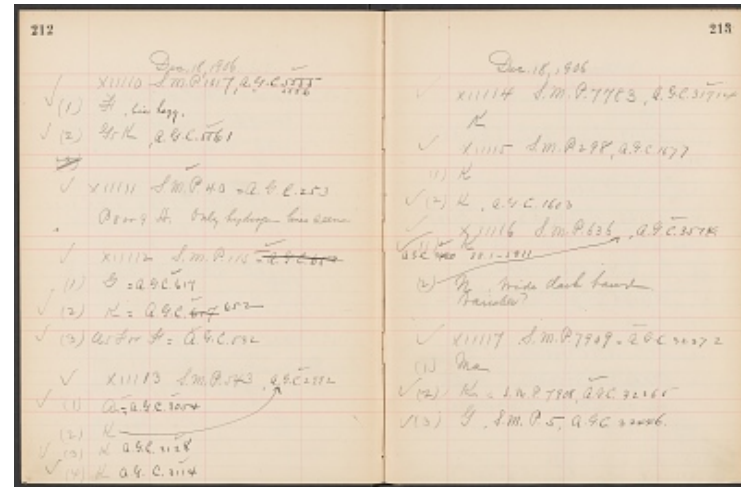 212
Dec. 18, 1906
✓ X11110 S.M.P. 1617, A.G.C. 5555
5556
✓ (1) F. lines hazy.
✓ (2) G or K, A.G.C. 5561
✓ X11111 S.M.P. 40 = A.G.C. 253
B or 9 A. Only hydrogen lines seen
✓ X11112 S.M.P. 115
(1) G = A.G.C. 617
✓ (2) K = A.G.C. 652
✓ (3) A.G.C. 592
✓ X11113 S.M.P. 543, A.G.C. 2992
✓ (1) A.G.C. 3054
(2) K
✓ (3) K A.G.C. 3128
✓ (4) K A.G.C. 3114
213
Dec. 18, 1906
✓ X11114 S.M.P. 7783, A.G.C. 31714
K
✓ X11115 S.M.P. 298, A.G.C. 1677
(1) K
✓ (2) K, A.G.C. 1603
✓ X11116 S.M.P. 636, A.G.C.
(2) wide dark band
✓ X11117 S.M.P. 7909 = A.G.C. 32272
(1) Ma
✓ (2) K = S.M.P. 7908, A.G.C. 32265
✓ (3) G, S.M.P. 5, A.G.C.